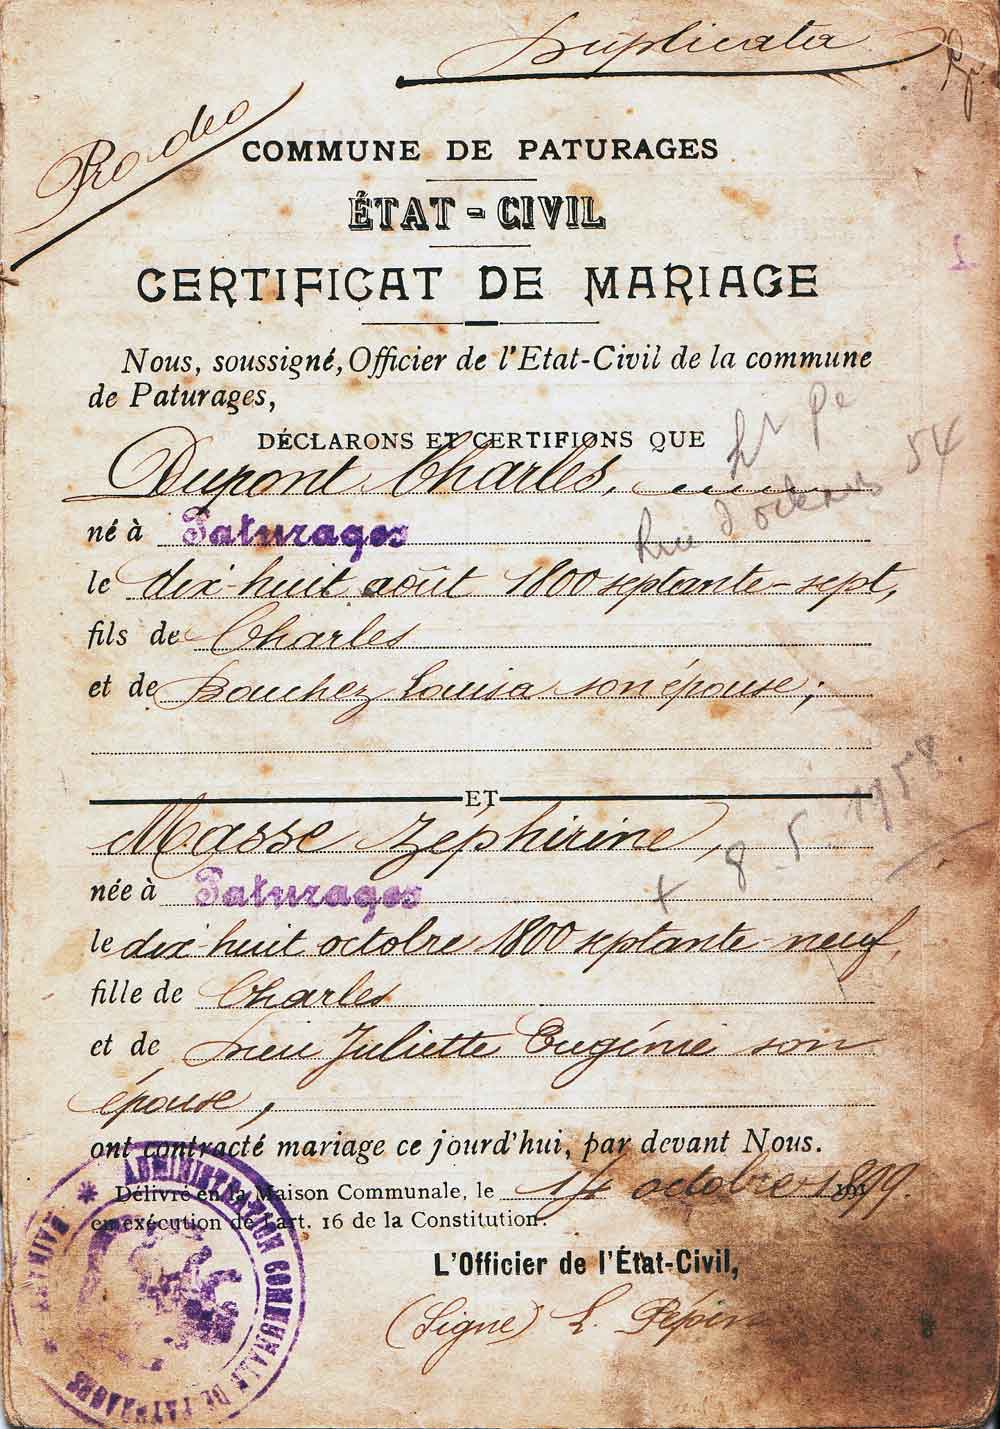 Duplicata
Pro deo
COMMUNE DE PATURAGES
ÉTAT-CIVIL
1
CERTIFICAT DE MARIAGE
Nous, soussigné, Officier de l'Etat-Civil de la commune
de Paturages,
DÉCLARONS ET CERTIFIONS QUE
Dupont Charles,
né à Paturages
le dix-huit août 1800 septante-sept,
fils de Charles
et de Bouchez Louisa son épouse;
54
Rue
ET
Masse Zéphirine,
+ 8.5.1958
née à Paturages
le dix-huit octobre 1800 septante-neuf,
fille de Charles
et de Juliette Eugénie son
épouse,
ont contracté mariage ce jourd'hui, par devant Nous.
Délivré en la Maison Communale, le 14 octobre 1899.
en exécution de l'art. 16 de la Constitution.
L'Officier de l'État-Civil,
(Signé) L. Pépin
ADMINISTRATION COMMUNALE DE PATURAGES
HAINAUT